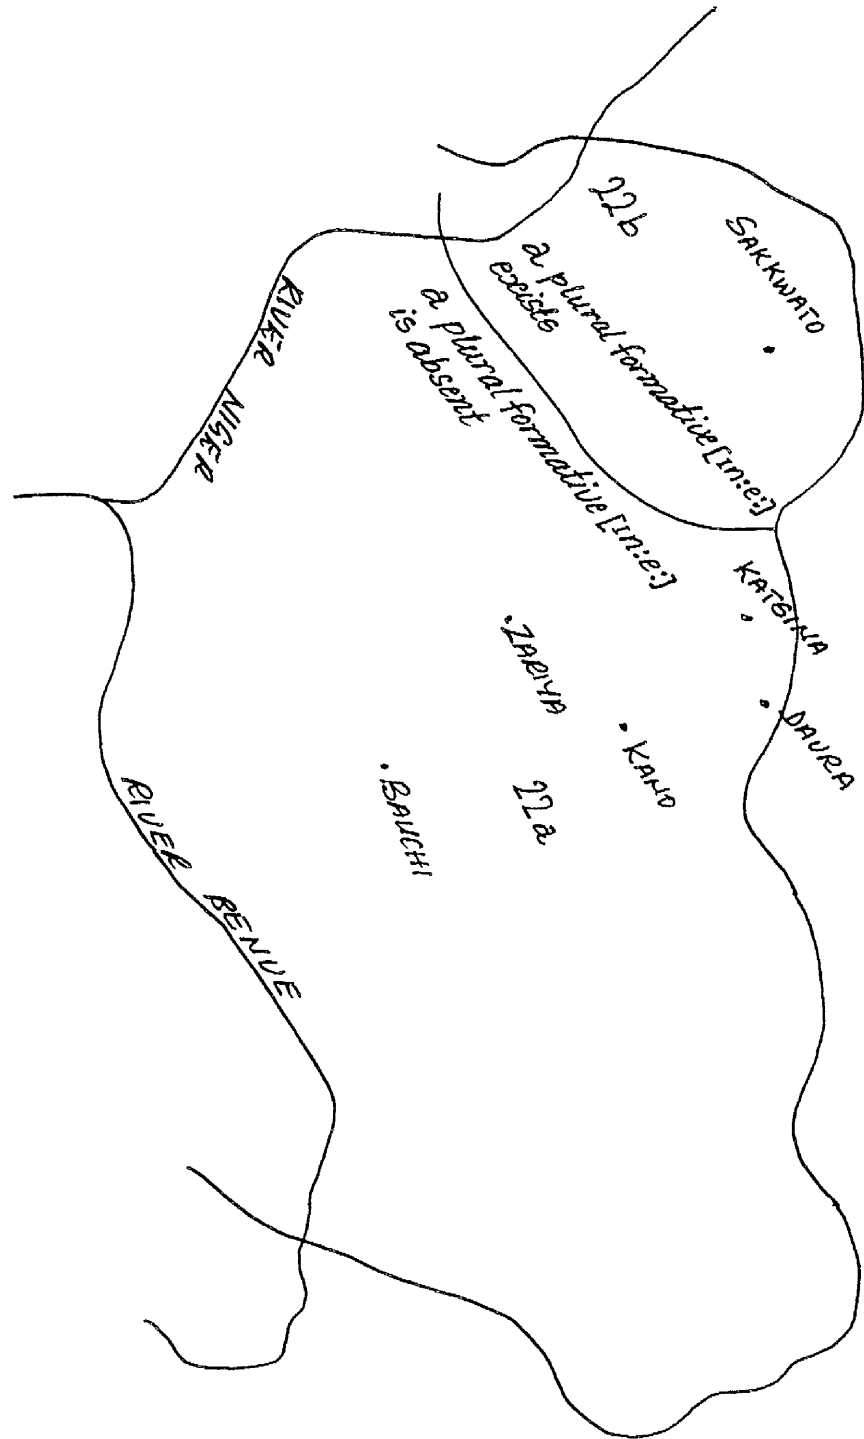 22b
SAKKWATO
a plural formative [ɪn:e:]
exists
a plural formative [ɪn:e:]
is absent
KATSINA
DAURA
KANO
ZARIYA
22a
BAUCHI
RIVER NIGER
RIVER BENUE